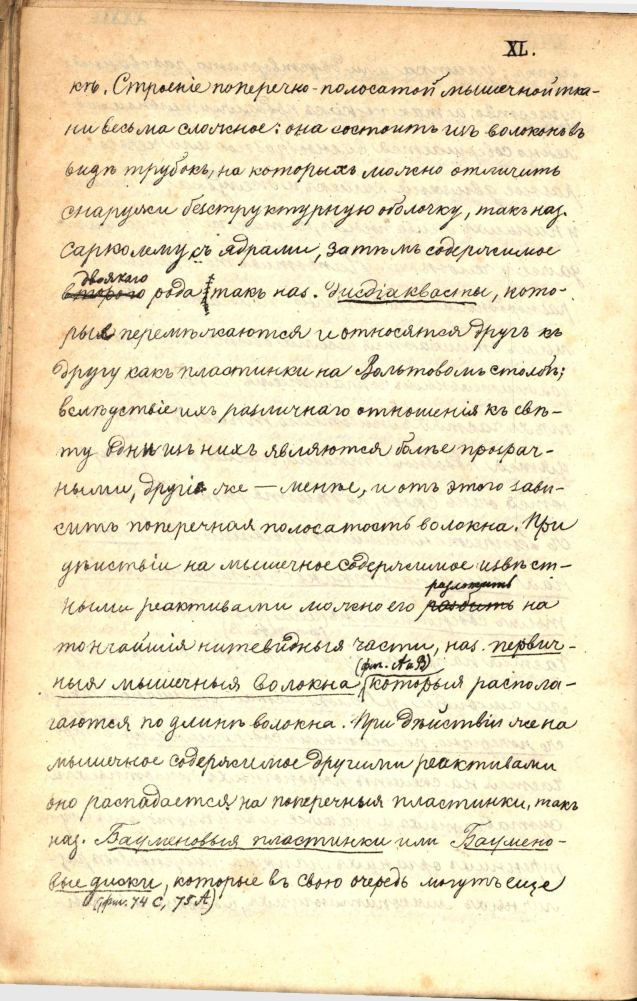 XL.
къ. Строеніе поперечно-полосатой мышечной тка-
ни весьма сложное: она состоитъ изъ волоконъ въ
видѣ трубокъ, на которыхъ можно отличить
снаружи безструктурную оболочку, такъ наз.
сарколему съ ядрами, затѣмъ содержимое
двоякаго
второго рода такъ наз. Дисдіакласты, кото-
рые перемѣжаются и относятся другъ къ
другу какъ пластинки на Вольтовомъ столбѣ;
вслѣдствіе ихъ различнаго отношенія къ свѣ-
ту одни изъ нихъ являются болѣе прозрач-
ными, другіе же — менѣе, и отъ этого зави-
ситъ поперечная полосатость волокна. При
дѣйствіи на мышечное содержимое извѣст-
разложить
ными реактивами можно его разбить на
тончайшія нитевидныя части, наз. первич-
(фиг. А и В)
ныя мышечныя волокна которыя распола-
гаются по длинѣ волокна. При дѣйствіи же на
мышечное содержимое другими реактивами
оно распадается на поперечныя пластинки, такъ
наз. Бауменовыя пластинки или Баумено-
вые диски, которые въ свою очередь могутъ еще
(фиг. 74 С, 75 А)